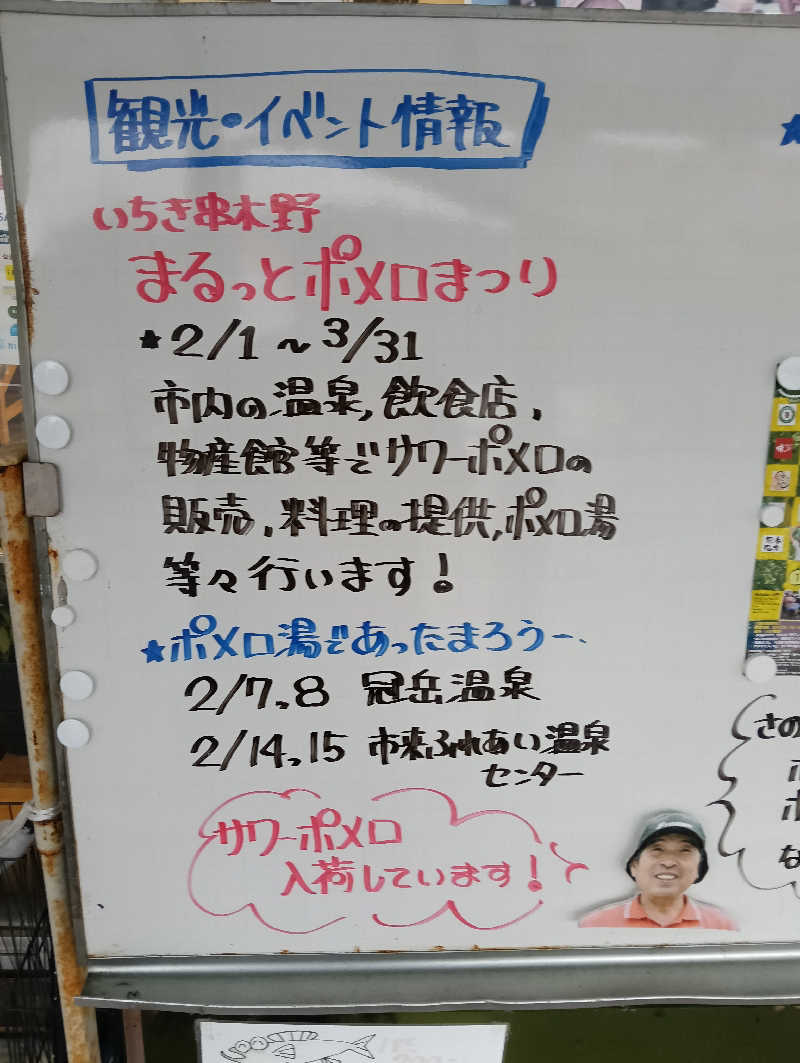 観光・イベント情報
いちき串木野
まるっとポメロまつり
★2/1～3/31
市内の温泉,飲食店,
物産館等でサワーポメロの
販売,料理の提供,ポメロ湯
等々行います!
★ポメロ湯であったまろうー、
2/7,8 冠岳温泉
2/14,15 市来ふれあい温泉
センター
サワーポメロ
入荷しています!
さの